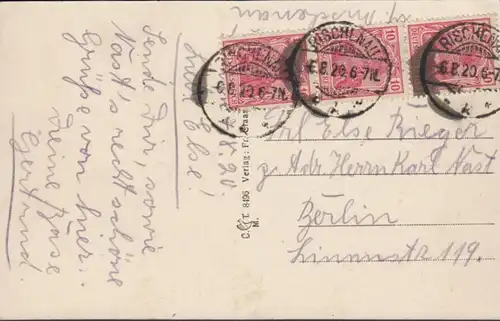 6.8.20
Liebe Else!
Sende Dir, sowie
Nast's recht schöne
Grüße von hier.
Deine Base
Gertrud.
C. & T. 8496 Verlag: Fr.
M.
RISCHENAU
6.8.20.6-7N.
RISCHENAU
6.8.20.6-7N.
RISCHENAU
6.8.20.6-7N.
10
10
Frl Else Rieger
z. Adr Herrn Karl Nast
Berlin
Linienstr 119.